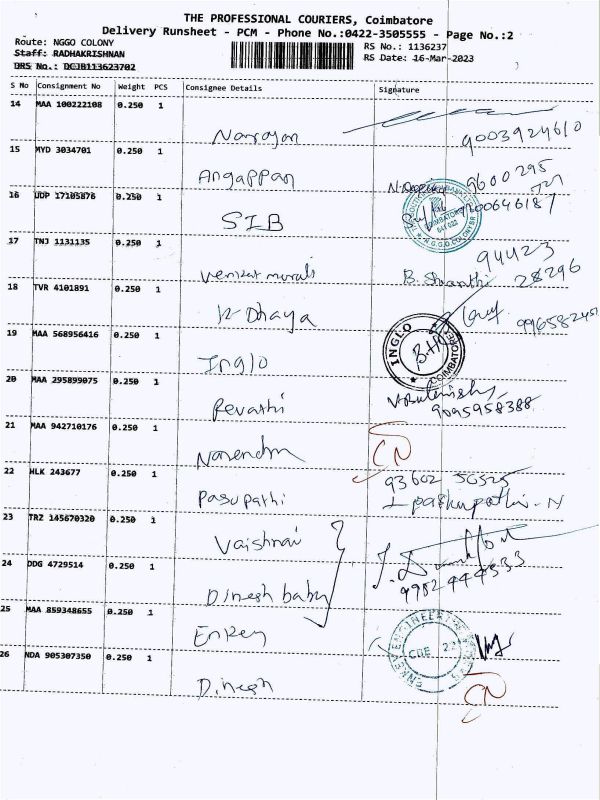 THE PROFESSIONAL COURIERS, Coimbatore
Delivery Runsheet - PCM - Phone No.:0422-3505555 - Page No.:2
Route: NGGO COLONY
Staff: RADHAKRISHNAN
DRS No.: DCJB113623702
RS No.: 1136237
RS Date: 16-Mar-2023
S No Consignment No Weight PCS Consignee Details Signature
14 MAA 100222108 0.250 1
Narayan 9003924610
15 MYD 3034701 0.250 1
Angappan 9600295
727
16 UDP 17105876 0.250 1
SIB 9200646187
17 TNJ 1131135 0.250 1
Venkat murali B. Shanthi 94423
28296
18 TVR 4101891 0.250 1
K Dhaya
19 MAA 568956416 0.250 1
Inglo INGLO COIMBATORE
20 MAA 295899075 0.250 1
Revathi 9095958388
21 MAA 942710176 0.250 1
Narendra CN
22 HLK 243677 0.250 1
Pasupathi 93602 50525
23 TRZ 145670320 0.250 1
Vaishnavi
24 DDG 4729514 0.250 1
Dinesh babu 9982444333
25 MAA 859348655 0.250 1
Enkey CBE
26 NDA 905307350 0.250 1
Dinesh CN